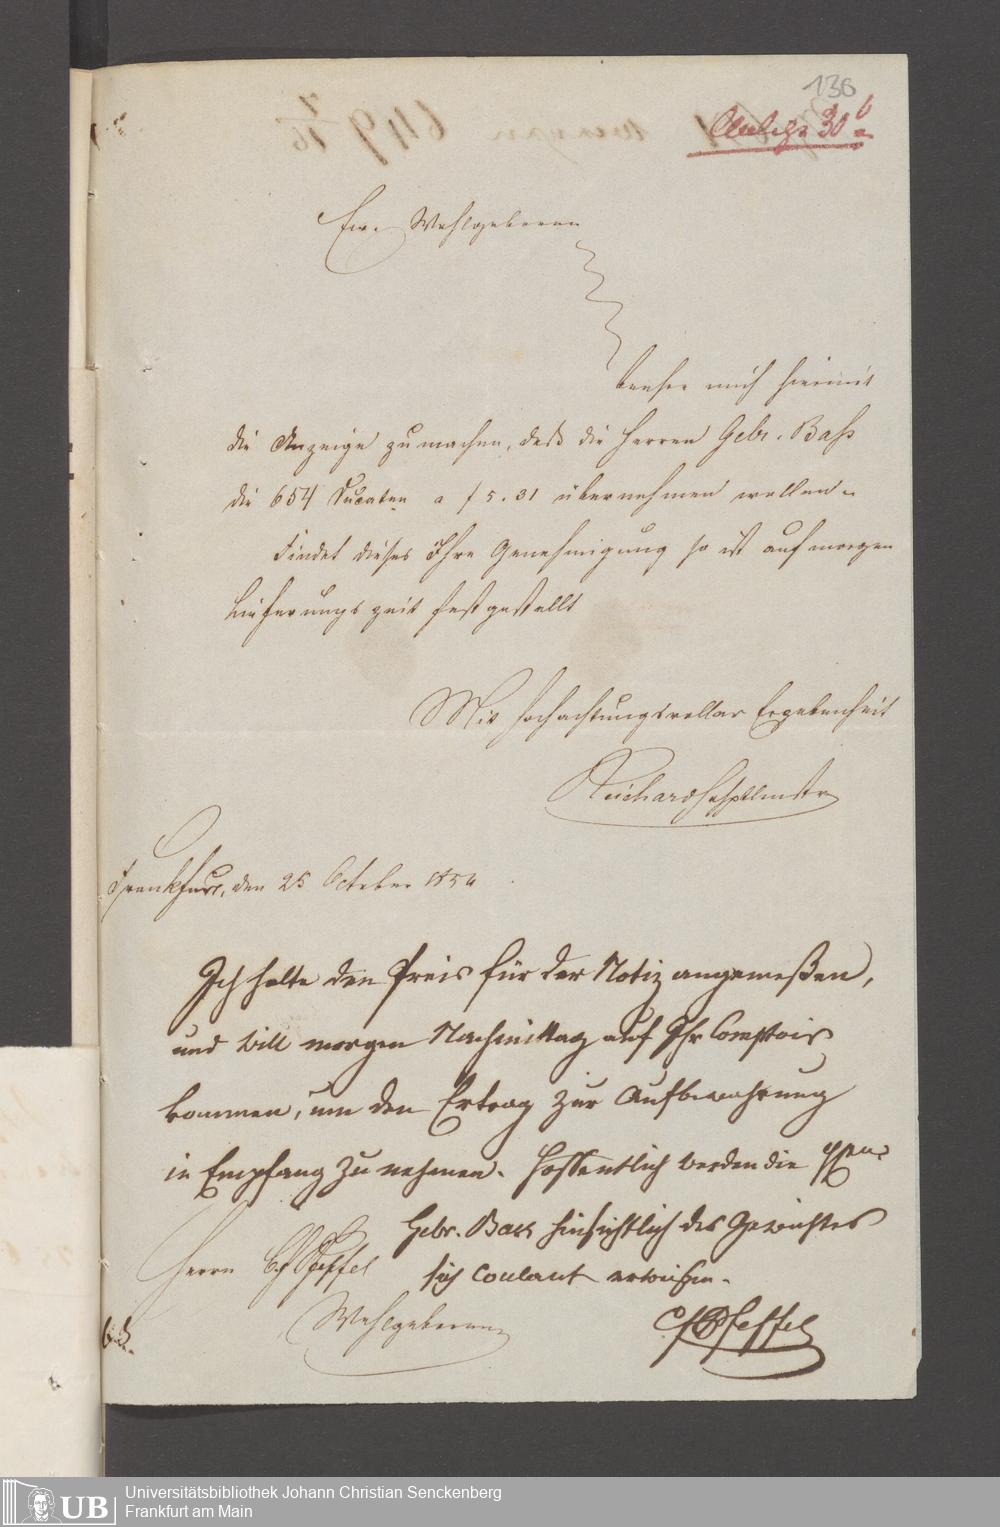 136
Anlage 30 b
Ew. Wohlgeboren
beehre mich hiermit
die Anzeige zu machen, daß die Herren Gebr. Bass
die 654 Ducaten a f 5.31 übernehmen wollen.
Findet dieses Ihre Genehmigung so ist auf morgen
Lieferungszeit festgestellt
Mit hochachtungsvoller Ergebenheit
Frankfurt, den 25 October 1854
Ich halte den Preis für der Notiz angemeßen,
und will morgen Nachmittag auf Ihr Comptoir
kommen, um den Ertrag zur Aufbewahrung
in Empfang zu nehmen. Hoffentlich werden die HHen
Gebr. Bass hinsichtlich des Gewichtes
sich coulant erweisen.
Herrn C. f. Pfeffel
Wohlgeboren
CfPfeffel
UB
Universitätsbibliothek Johann Christian Senckenberg
Frankfurt am Main